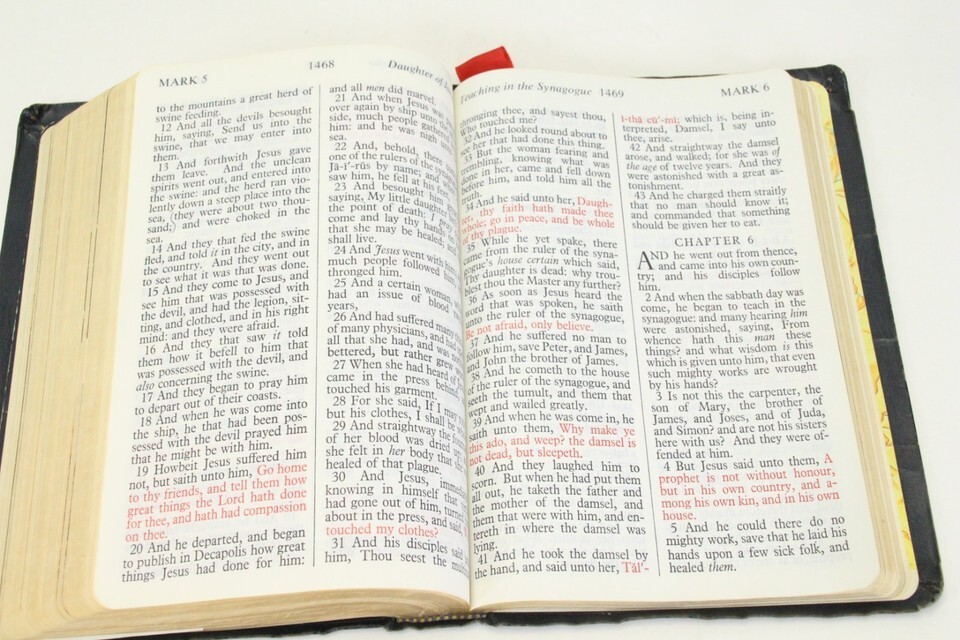 MARK 5
1468
Daughter of
to the mountains a great herd of
swine feeding.
12 And all the devils besought
him, saying, Send us into the
swine, that we may enter into
them.
13 And forthwith Jesus gave
them leave. And the unclean
spirits went out, and entered into
the swine: and the herd ran vio-
lently down a steep place into the
sea, (they were about two thou-
sand;) and were choked in the
sea.
14 And they that fed the swine
fled, and told it in the city, and in
the country. And they went out
to see what it was that was done.
15 And they come to Jesus, and
see him that was possessed with
the devil, and had the legion, sit-
ting, and clothed, and in his right
mind: and they were afraid.
16 And they that saw it told
them how it befell to him that
was possessed with the devil, and
also concerning the swine.
17 And they began to pray him
to depart out of their coasts.
18 And when he was come into
the ship, he that had been pos-
sessed with the devil prayed him
that he might be with him.
19 Howbeit Jesus suffered him
not, but saith unto him, Go home
to thy friends, and tell them how
great things the Lord hath done
for thee, and hath had compassion
on thee.
20 And he departed, and began
to publish in Decapolis how great
things Jesus had done for him:
and all men did marvel.
21 And when Jesus was
over again by ship unto the
side, much people gath
him: and he was nigh un
sea.
22 And, behold, there
one of the rulers of the syna
Jā-i′-rŭs by name; and
saw him, he fell at his fe
23 And besought him
saying, My little daughter
the point of death: I
come and lay thy hand
that she may be healed;
shall live.
24 And Jesus went with
much people followed him
thronged him.
25 And a certain woman,
had an issue of blood
years,
26 And had suffered many
of many physicians, and
all that she had, and was no
bettered, but rather grew
27 When she had heard of
came in the press behind
touched his garment.
28 For she said, If I may
but his clothes, I shall be
29 And straightway the fo
of her blood was dried u
she felt in her body that sh
healed of that plague.
30 And Jesus, immed
knowing in himself that
had gone out of him, turned
about in the press, and said,
touched my clothes?
31 And his disciples said
him, Thou seest the mul
Teaching in the Synagogue 1469
MARK 6
thronging thee, and sayest thou,
Who touched me?
32 And he looked round about to
see her that had done this thing.
33 But the woman fearing and
trembling, knowing what was
done in her, came and fell down
before him, and told him all the
truth.
34 And he said unto her, Daugh-
ter, thy faith hath made thee
whole; go in peace, and be whole
of thy plague.
35 While he yet spake, there
came from the ruler of the syna-
gogue's house certain which said,
Thy daughter is dead: why trou-
blest thou the Master any further?
36 As soon as Jesus heard the
word that was spoken, he saith
unto the ruler of the synagogue,
Be not afraid, only believe.
37 And he suffered no man to
follow him, save Peter, and James,
and John the brother of James.
38 And he cometh to the house
of the ruler of the synagogue, and
seeth the tumult, and them that
wept and wailed greatly.
39 And when he was come in, he
saith unto them, Why make ye
this ado, and weep? the damsel is
not dead, but sleepeth.
40 And they laughed him to
scorn. But when he had put them
all out, he taketh the father and
the mother of the damsel, and
them that were with him, and en-
tereth in where the damsel was
lying.
41 And he took the damsel by
the hand, and said unto her, Tăl′-
ĭ-thă cū′-mī; which is, being in-
terpreted, Damsel, I say unto
thee, arise.
42 And straightway the damsel
arose, and walked; for she was of
the age of twelve years. And they
were astonished with a great as-
tonishment.
43 And he charged them straitly
that no man should know it;
and commanded that something
should be given her to eat.
CHAPTER 6
AND he went out from thence,
and came into his own coun-
try; and his disciples follow
him.
2 And when the sabbath day was
come, he began to teach in the
synagogue: and many hearing him
were astonished, saying, From
whence hath this man these
things? and what wisdom is this
which is given unto him, that even
such mighty works are wrought
by his hands?
3 Is not this the carpenter, the
son of Mary, the brother of
James, and Joses, and of Juda,
and Simon? and are not his sisters
here with us? And they were of-
fended at him.
4 But Jesus said unto them, A
prophet is not without honour,
but in his own country, and a-
mong his own kin, and in his own
house.
5 And he could there do no
mighty work, save that he laid his
hands upon a few sick folk, and
healed them.